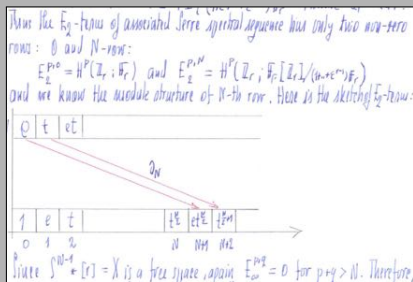 Thus the E_2-terms of associated Serre spectral sequence has only two non-zero
rows: 0 and N-row:
E_2^{p,0} = H^p(Z_r; F_r) and E_2^{p,N} = H^p(Z_r; F_r[Z_r]/
and we know the module structure of N-th row. Here is the sketch of E_2-term:
t et
∂_N
1 e t
0 1 2 N N+1 N+2
Since S^{N-1} * [r] = X is a free space, again E_∞^{p,q} = 0 for p+q > N. Therefore,